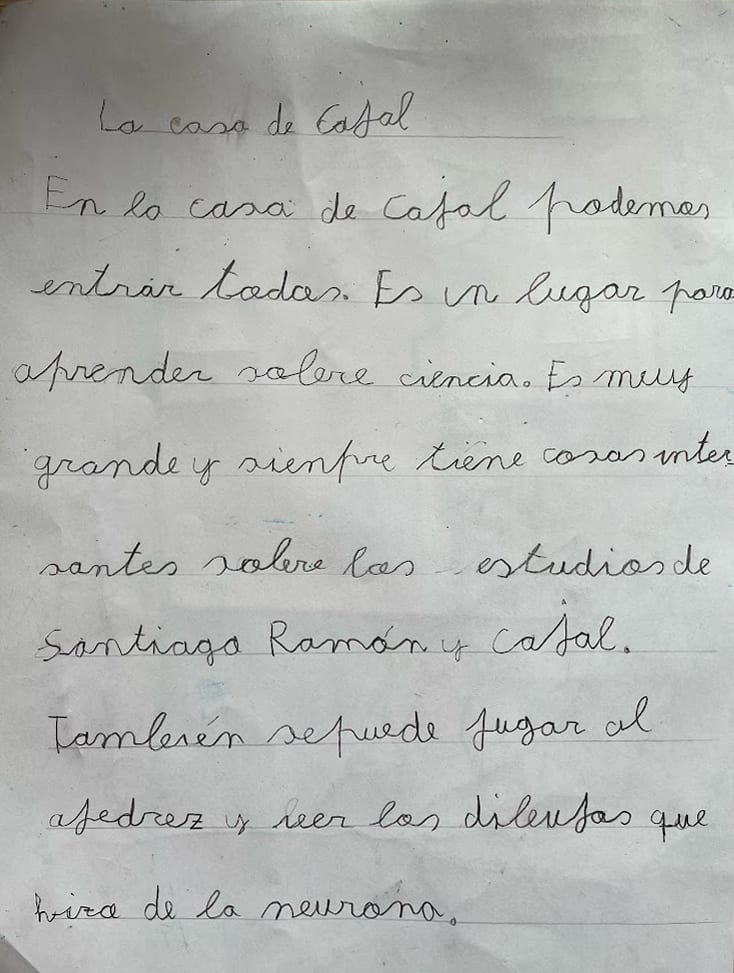 La casa de Cajal
En la casa de Cajal podemos
entrar todos. Es un lugar para
aprender sobre ciencia. Es muy
grande y sienpre tiene cosas inter
santes sobre los estudios de
Santiago Ramón y Cajal.
También se puede jugar al
ajedrez y leer los dibujos que
hizo de la neurona.